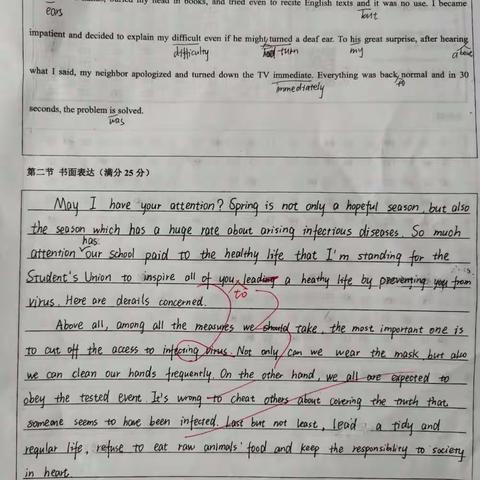 buried my head in books, and tried even to recite English texts and it was no use. I became
ears
but
impatient and decided to explain my difficult even if he might turned a deaf ear. To his great surprise, after hearing
difficulty
turn
my
what I said, my neighbor apologized and turned down the TV immediate. Everything was back normal and in 30
immediately
to
seconds, the problem is solved.
was
第二节 书面表达（满分 25 分）
May I have your attention? Spring is not only a hopeful season, but also
the season which has a huge rate about arising infectious diseases. So much
has
attention our school paid to the healthy life that I'm standing for the
Student's Union to inspire all of you leading a heathy life by preventing you from
to
virus. Here are details concerned.
Above all, among all the measures we should take, the most important one is
to cut off the access to infecting virus. Not only can we wear the mask, but also
we can clean our hands frequently. On the other hand, we all are expected to
obey the tested event. It's wrong to cheat others about covering the truth that
someone seems to have been infected. Last but not least, lead a tidy and
regular life, refuse to eat raw animals' food and keep the responsibility to society
in heart.